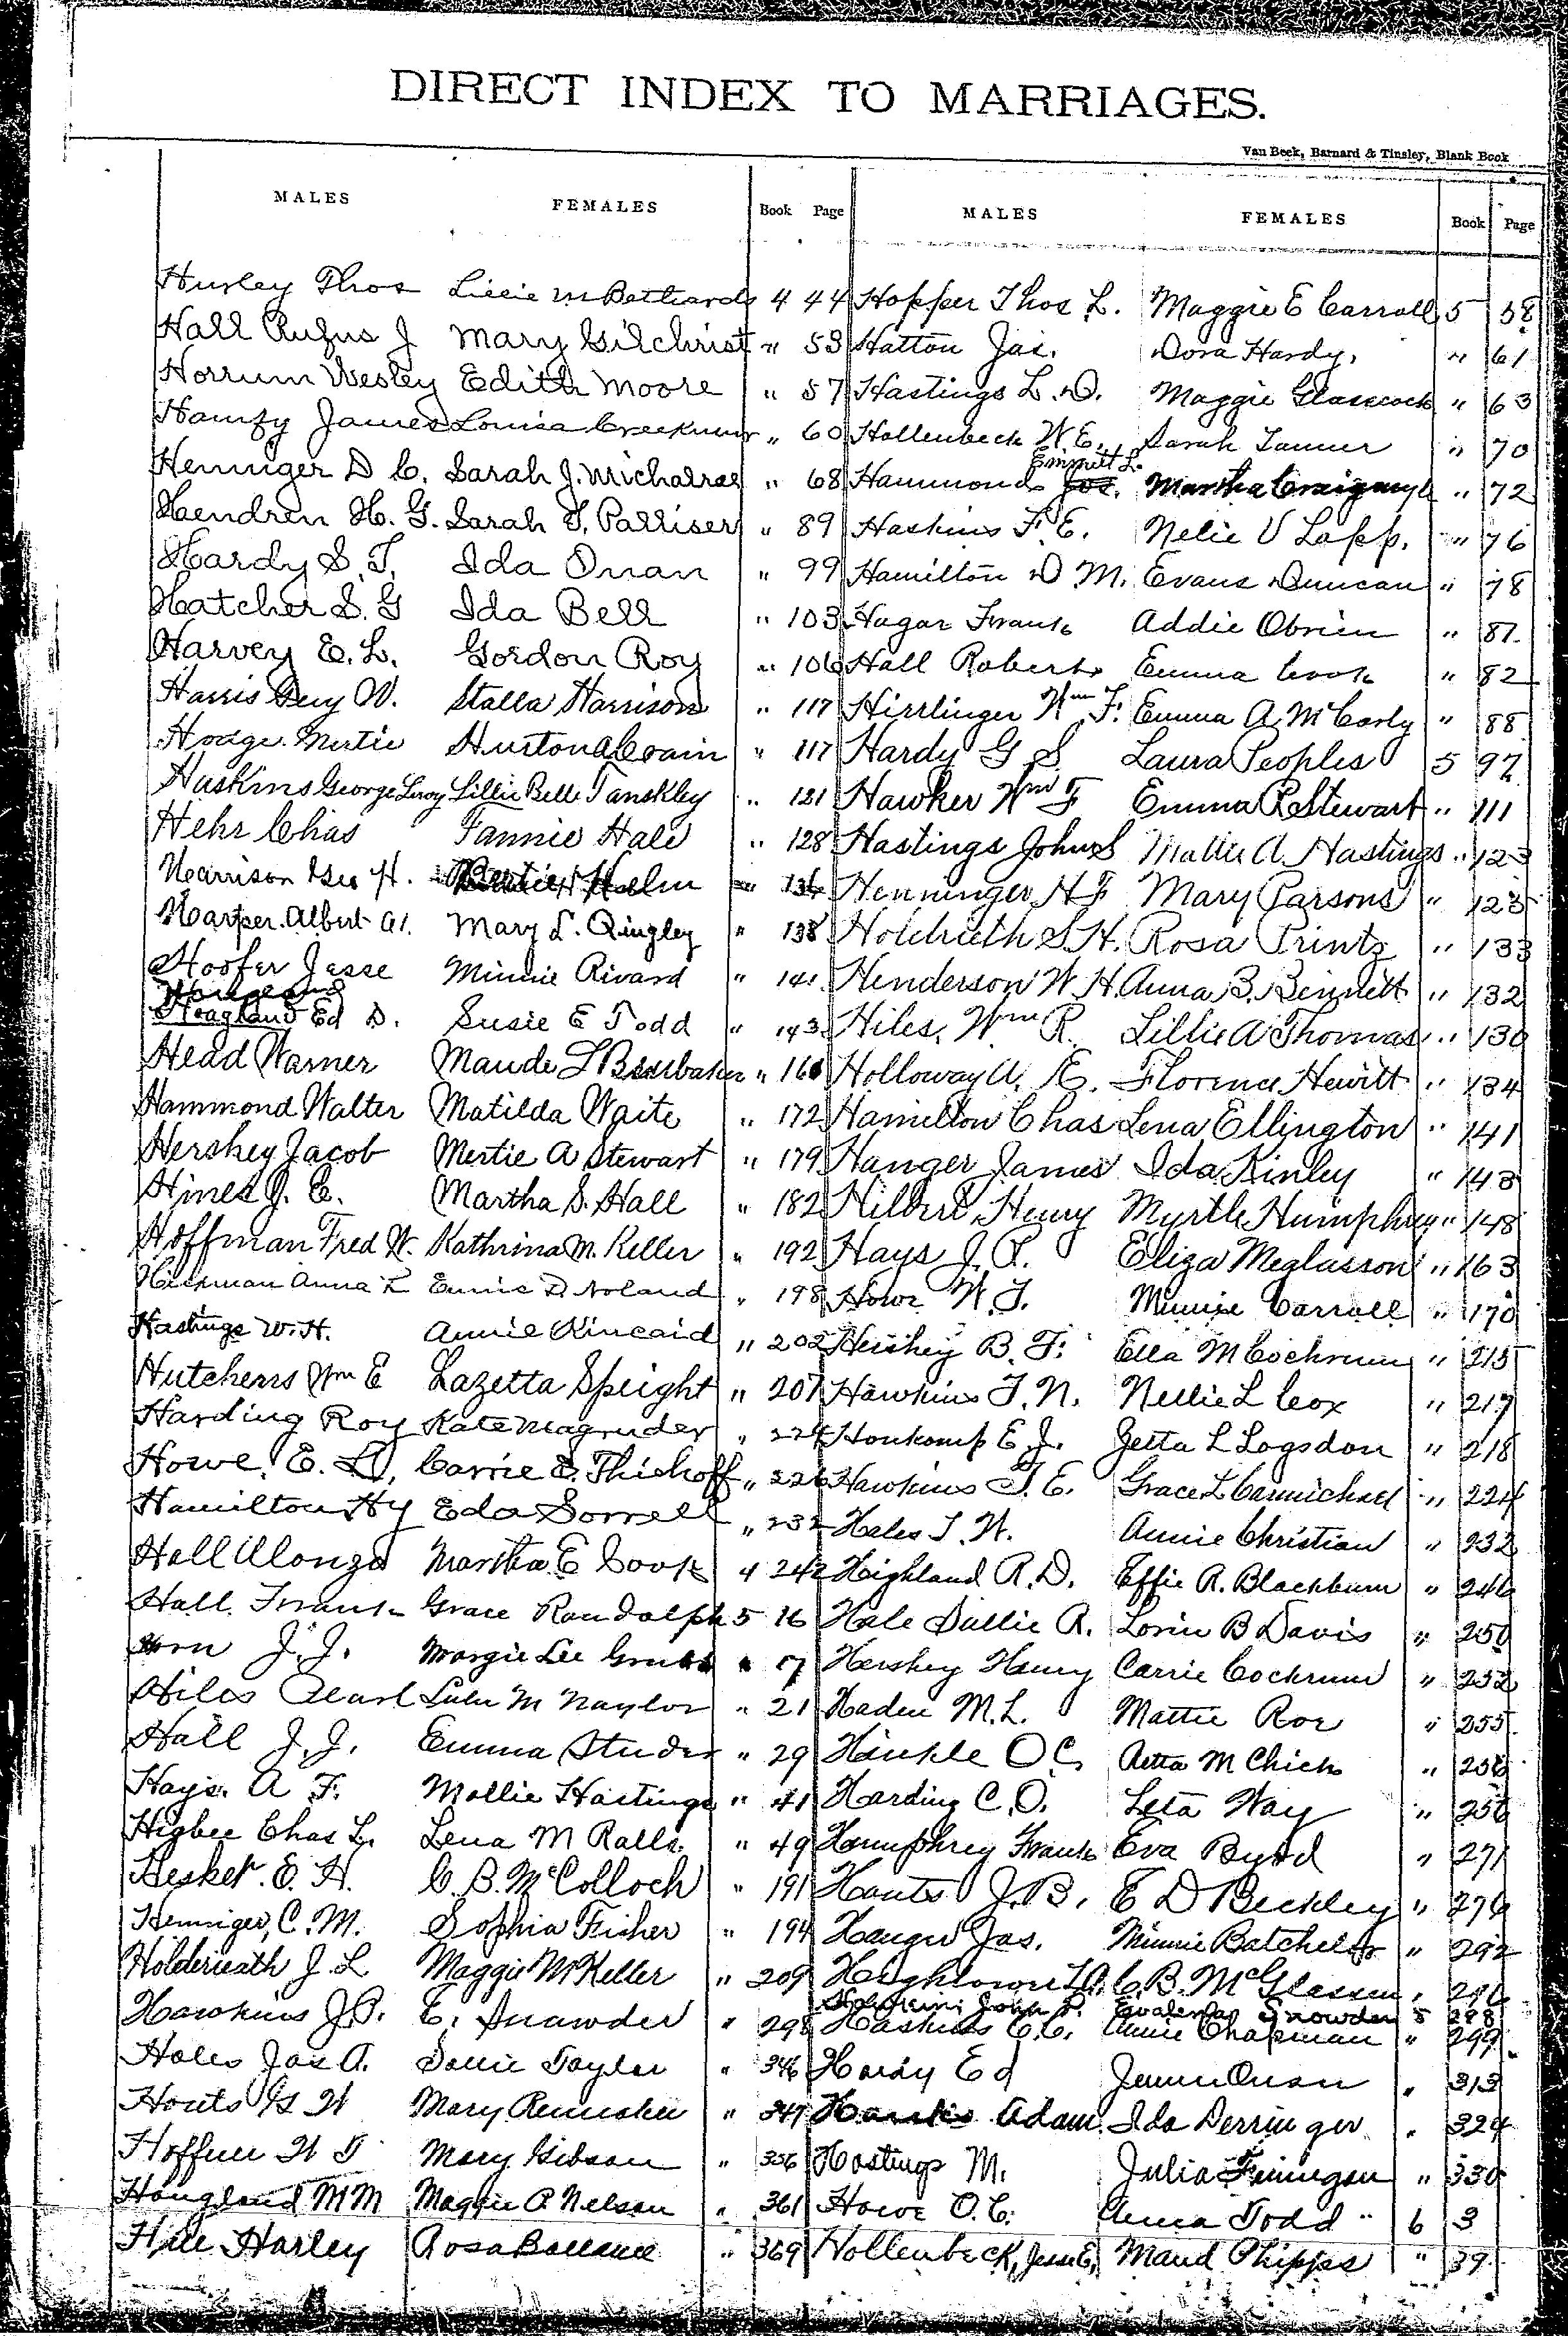 DIRECT INDEX TO MARRIAGES.
Van Beek, Barnard & Tinsley, Blank Book
MALES FEMALES Book Page MALES FEMALES Book Page
Hurley Thos Lillie M Bethards 4 44 Hopper Thos L. Maggie E Carroll 5 58
Hall Rufus J Mary Gilchrist " 53 Hatton Jas. Dora Hardy. " 61
Horrum Wesley Edith Moore " 57 Hastings L. D. Maggie Glasscock " 63
James Louisa " 60 Hollenbeck W.E. Sarah Tanner " 70
Henniger D C. Sarah J. " 68 Hammond Emmett L. Jos. Martha " 72
Hendren H. G. Sarah T. Palliser " 89 Haskins F. E. Nelie V Lapp. " 76
Hardy S. T. Ida Onan " 99 Hamilton D M. Evans Duncan " 78
Hatcher S. G Ida Bell " 103 Hagar Frank Addie Obrien " 81
Harvey E. L. Gordon Roy " 106 Hall Robert Emma Cook " 82
Harris Guy W. Stalla Harrison " 117 Hirrlinger Wm F. Emma A McCarty " 88
Hodge Mertie Huston Crain " 117 Hardy G S Laura Peoples 5 97
Haskins George Leroy Lillie Belle Tanskley " 121 Hawker Wm F Emma R Stewart " 111
Hehr Chas Fannie Hale " 128 Hastings John S Mattie A. Hastings " 123
Harrison Geo H. Bertie Helm " 136 Henninger H F Mary Parsons " 125
Harper Albert A. Mary L. Quigley " 138 Holdrieth S. H. Rosa Printz " 133
Hoofer Jesse Minnie Rivard " 141 Henderson W. H. Anna B. Bennett " 132
Hoagland Ed D. Susie E Todd " 143 Hiles, Wm R. Lillie A Thomas " 130
Head Warner Maude L Brubaker " 161 Holloway A. E. Florence Hewitt " 134
Hammond Walter Matilda Waite " 172 Hamilton Chas Lena Ellington " 141
Hershey Jacob Mertie A Stewart " 179 Hanger James Ida Kinley " 143
Hines J. E. Martha S. Hall " 182 Hilbert Henry Myrtle Humphrey " 148
Hoffman Fred W. Kathrina M. Keller " 192 Hays J. P. Eliza Meglasson " 163
Hickman Anna L Ennis D Noland " 198 Howe W. T. Minnie Carroll " 170
Hastings W. H. Annie Kincaid " 202 Hershey B. F. Ella M Cochrum " 215
Hutchens Wm E Lazetta Speight " 207 Hawkins T. N. Nellie L Cox " 217
Harding Roy Kate Magruder " 224 Honkomp E J. Zetta L Logsdon " 218
Howe, E. D. Carrie E. Thiehoff " 226 Hawkins T. E. Grace L Carmichael " 224
Hamilton Hy Eda Sorrell " 232 Hales T. W. Annie Christian " 232
Hall Alonzo Martha E Cook 4 242 Highland R. D. Effie R. Blackburn " 246
Hall Frank Grace Randolph 5 16 Hale Sallie R. Lorin B Davis " 250
Horn J. J. Margie Lee " 17 Hershey Henry Carrie Cochrum " 252
Hiles Pearl Lulu M Naylor " 21 Haden M. L. Mattie Roe " 255
Hall J. J. Emma Studer " 29 Hinkle O C. Aetta M Chick " 256
Hays. A F. Mollie Hastings " 41 Harding C. O. Leta Way " 256
Higbee Chas L. Lena M Ralls. " 49 Humphrey Frank Eva Byrd " 271
Hesket. E. H. C. B. McColloch " 191 Houts J. B. E D Beckley " 276
Henniger, C. M. Sophia Fisher " 194 Hanger Jas. Minnie Batchelor " 292
Holderieath J. L Maggie McKeller " 209 Hightower C. B. McGlasson " 296
John P. Snowden 5 298
Hawkins J. P. E. Snawder " 298 Haskins C. C. Annie Chapman " 299
Holes Jas A. Sallie Taylor " 346 Hardy Ed Jennie Onan " 313
Houts G W Mary " 347 Adam. Ida Derringer " 324
W T Mary Gibson " 356 Hastings M. Julia Finnegan " 330
Hougland M M Maggie A Nelson " 361 Howe O. C. Anna Todd " 6 3
Harley Rosa " 369 Hollenbeck, Jesse E, Maud Phipps " 39